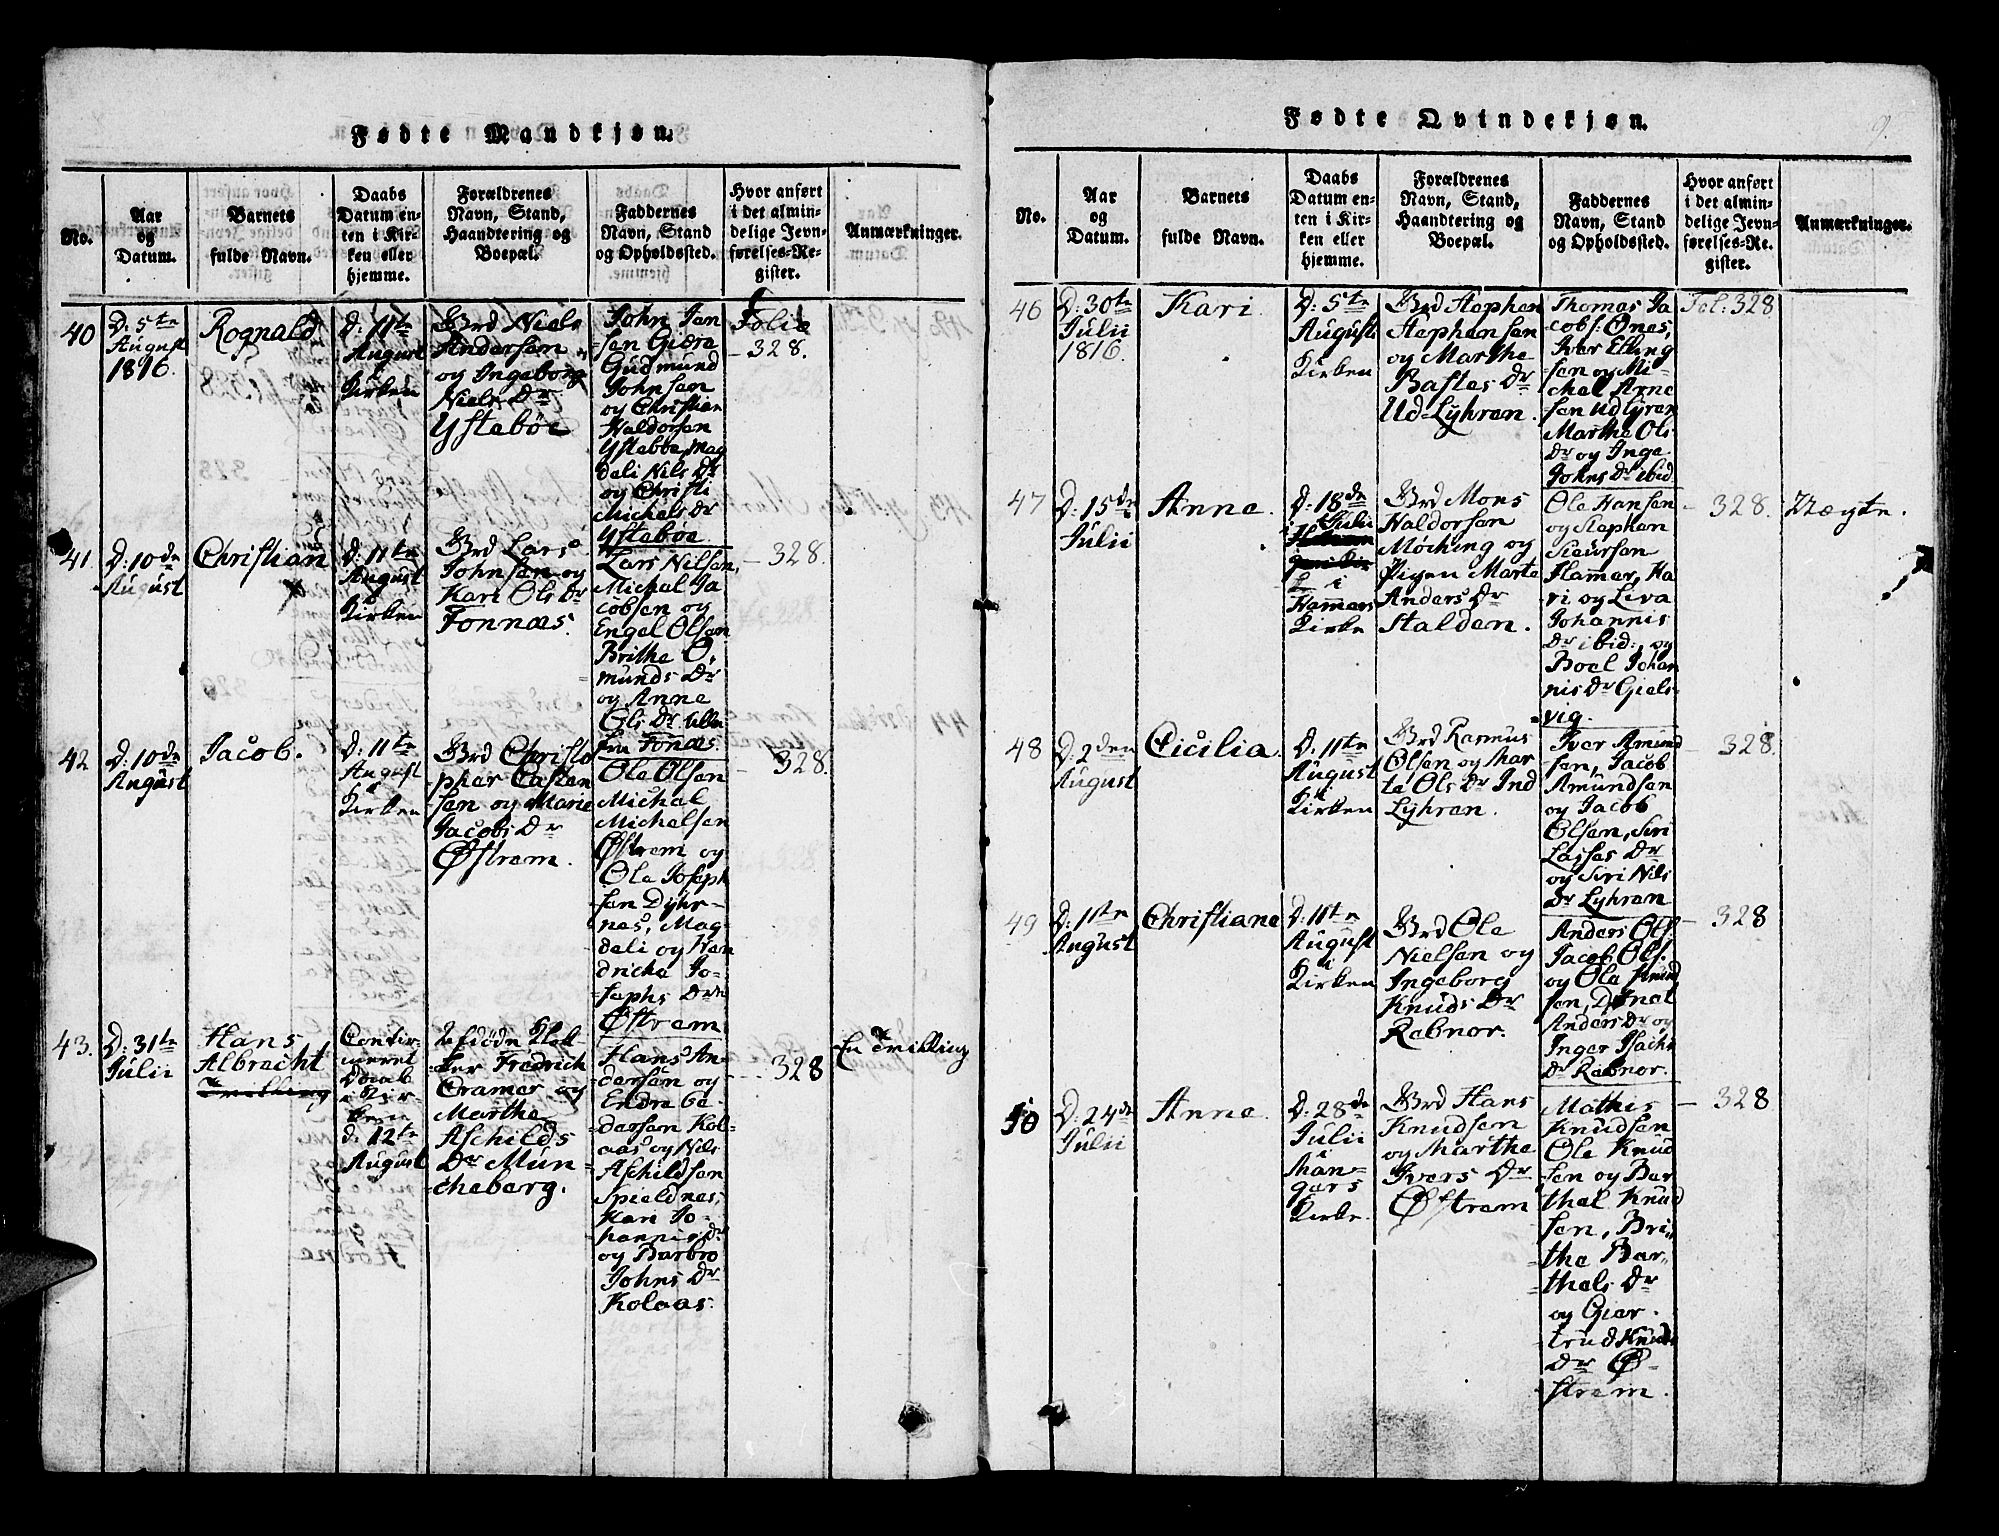 Fødte Mandkjøn.
No.
Aar
og
Datum.
Barnets
fulde Navn.
Daabs
Datum en-
ten i Kir-
ken eller
hjemme.
Forældrenes
Navn, Stand,
Haandtering og
Boepæl.
Faddernes
Navn, Stand
og Opholdssted.
Hvor anført
i det almin-
delige Jevn-
førelses-Re-
gister.
Anmærkninger.
40
D: 5te
August
1816.
Rognald
D: 11te
August
i
Kirken
Brd Niels
Andersen
og Ingeborg
Niels Dr
Ystebøe
John Jen
sen Giære
Gudmund
Johnsen
og Christian
Haldorsen
Ystebøe, Mag
deli Nils Dr
og Christi
Michels Dr
Ystebøe
Folie
328.
41
D: 10de
August
Christian
D: 11te
August
i
Kirken
Brd Lars
Johnsen og
Kari Ols Dr
Fonnæs.
Lars Nilsen,
Michel Ja
cobsen og
Engel Olsen
Brithe O,
munds Dr
og Anne
Ols Dr alle
fra Fonæs.
328.
42
D: 10de
August
Jacob.
D: 11te
August
i
Kirken
Brd Christo
pher Casten
sen og Marie
Jacobs Dr
Østrem.
Ole Olsen
Michel
Michelsen
Østrem og
Ole Joseph
sen Dyhr-
nes, Mag-
deli og Hen
driche Jo-
sephs Dr
Østrem
328.
43.
D: 31te
Julii
Hans
Albrecht
Confir-
meret
Daab
i Kir
ken
d: 12te
August
Fredrich
Cramer og
Marthe
Aschilds
Dr Mun-
cheberg.
Hans An-
dersen og
Endre Pe-
dersen Kol-
aas og Nils
Aschildsen
Spieldnes,
Kari Jo-
hannis Dr
og Barbro
Johns Dr
Kolaas.
328
En Trilling
Fødte Qvindekjøn.
9.
No.
Aar
og
Datum.
Barnets
fulde Navn.
Daabs
Datum en-
ten i Kir-
ken eller
hjemme.
Forældrenes
Navn, Stand,
Haandtering og
Boepæl.
Faddernes
Navn, Stand
og Opholdssted.
Hvor anført
i det almin-
delige Jevn-
førelses-Re-
gister.
Anmærkninger.
46
D: 30te
Julii
1816.
Kari
D: 5te
August
i
Kirken
Brd Stephen
Stephensen
og Marthe
Bastes Dr
Ud-Lyhren.
Thomas Ja
cobs: Ønes,
Iver Elling
sen og Mi-
chel Arne
sen Udlyren
Marthe Ols
Dr og Inge
Johns Dr ibid
Fol: 328
47
D: 15de
Julii
Anne.
D: 18de
Julii
i
Hammers
Kirke
Brd Mons
Haldorsen
Møching og
Pigen Marte
Anders Dr
Stalden.
Ole Hansen
og Stephen
Siursen
Hammer, Ka
ri og Liva
Johannis
Dr ibid:, og
Boel Johan
nis Dr Giels-
vig.
328.
Uægte.
48
D: 2den
August
Cicilia.
D: 11te
August
i
Kirken
Brd Rasmus
Olsen og Mar
te Ols Dr Ind
Lyhren.
Iver Amund
sen, Jacob
Amundsen
og Jacob
Olsen, Siri
Lasses Dr
og Siri Nils
Dr Lyhren
328.
49
D: 11te
August
Christiane
D: 11te
August
i
Kirken
Brd Ole
Nielsen og
Ingeborg
Knuds Dr
Rebnor.
Anders Ols.
Jacob Ols.
og Ole Amund
sen,
Anders Dr og
Inger Isachs
Dr Rebnor.
328
50
D: 24de
Julii
Anne.
D: 28de
Julii
i
Man-
gers
Kirke.
Brd Hans
Knudsen
og Marthe
Ivers Dr
Østrem
Mathis
Knudsen
Ole Knud
sen og Bar
thel Knud
sen, Bri-
the Bar-
thels Dr
og Gier-
trud Knuds
Dr Ø-
strem.
328